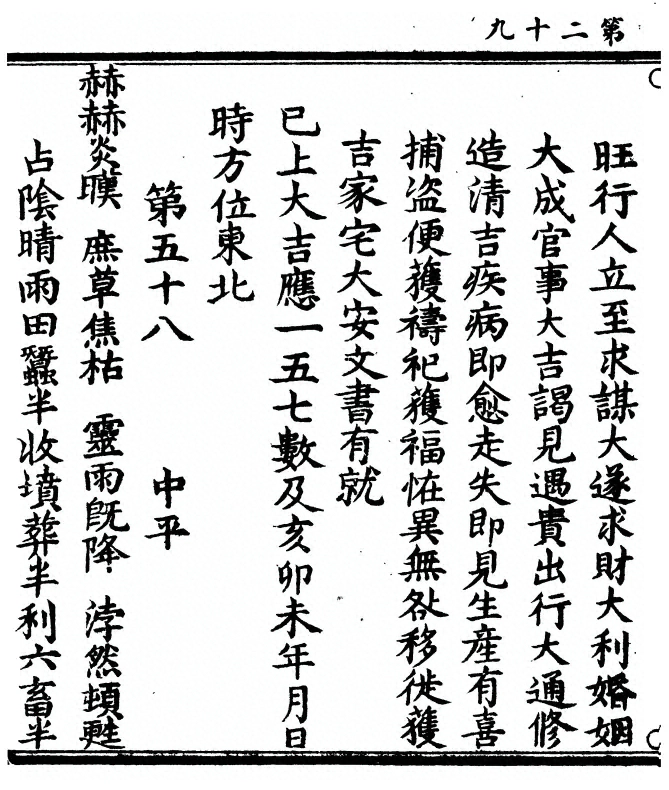 第二十九
旺行人立至求謀大遂求財大利婚姻
大成官事大吉謁見遇貴出行大通修
造清吉疾病即愈走失即見生產有喜
捕盜便獲禱祀獲福怪異無咎移徙獲
吉家宅大安文書有就
已上大吉應一五七數及亥卯未年月日
時方位東北
第五十八　中平
赫赫炎暵　庶草焦枯　靈雨既降　浡然頓甦
占陰晴雨田蠶半收墳葬半利六畜半